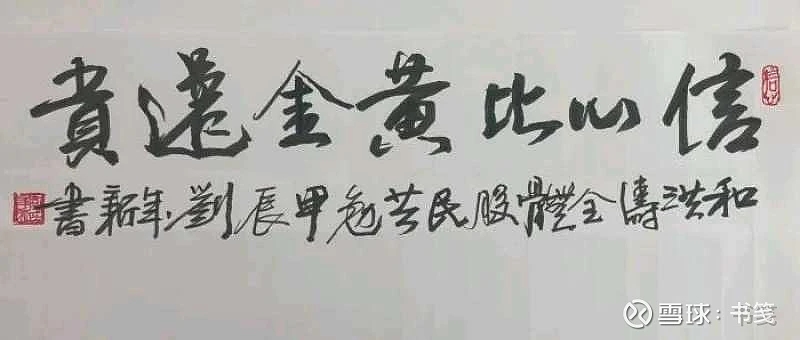 信心比黄金還貴
和洪濤全體股民共勉甲辰劉年新書
雪球：书笺